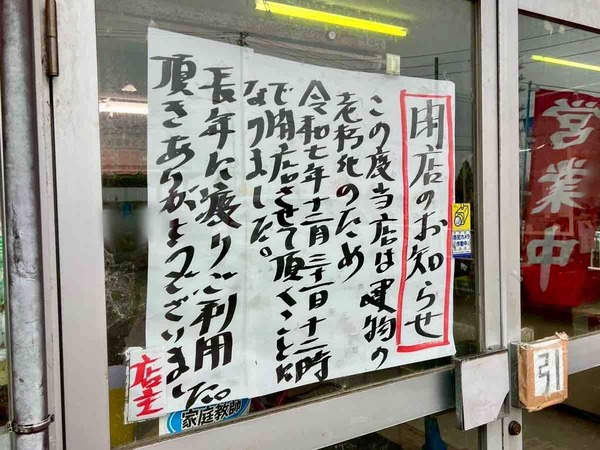 閉店のお知らせ
この度当店は建物の
老朽化のため
令和七年十二月三十一日十二時
で閉店させて頂くことに
なりました。
長年に渡りご利用
頂きありがとうございました。
店主
営業中
防犯カメラ
作動中
引
家庭教師